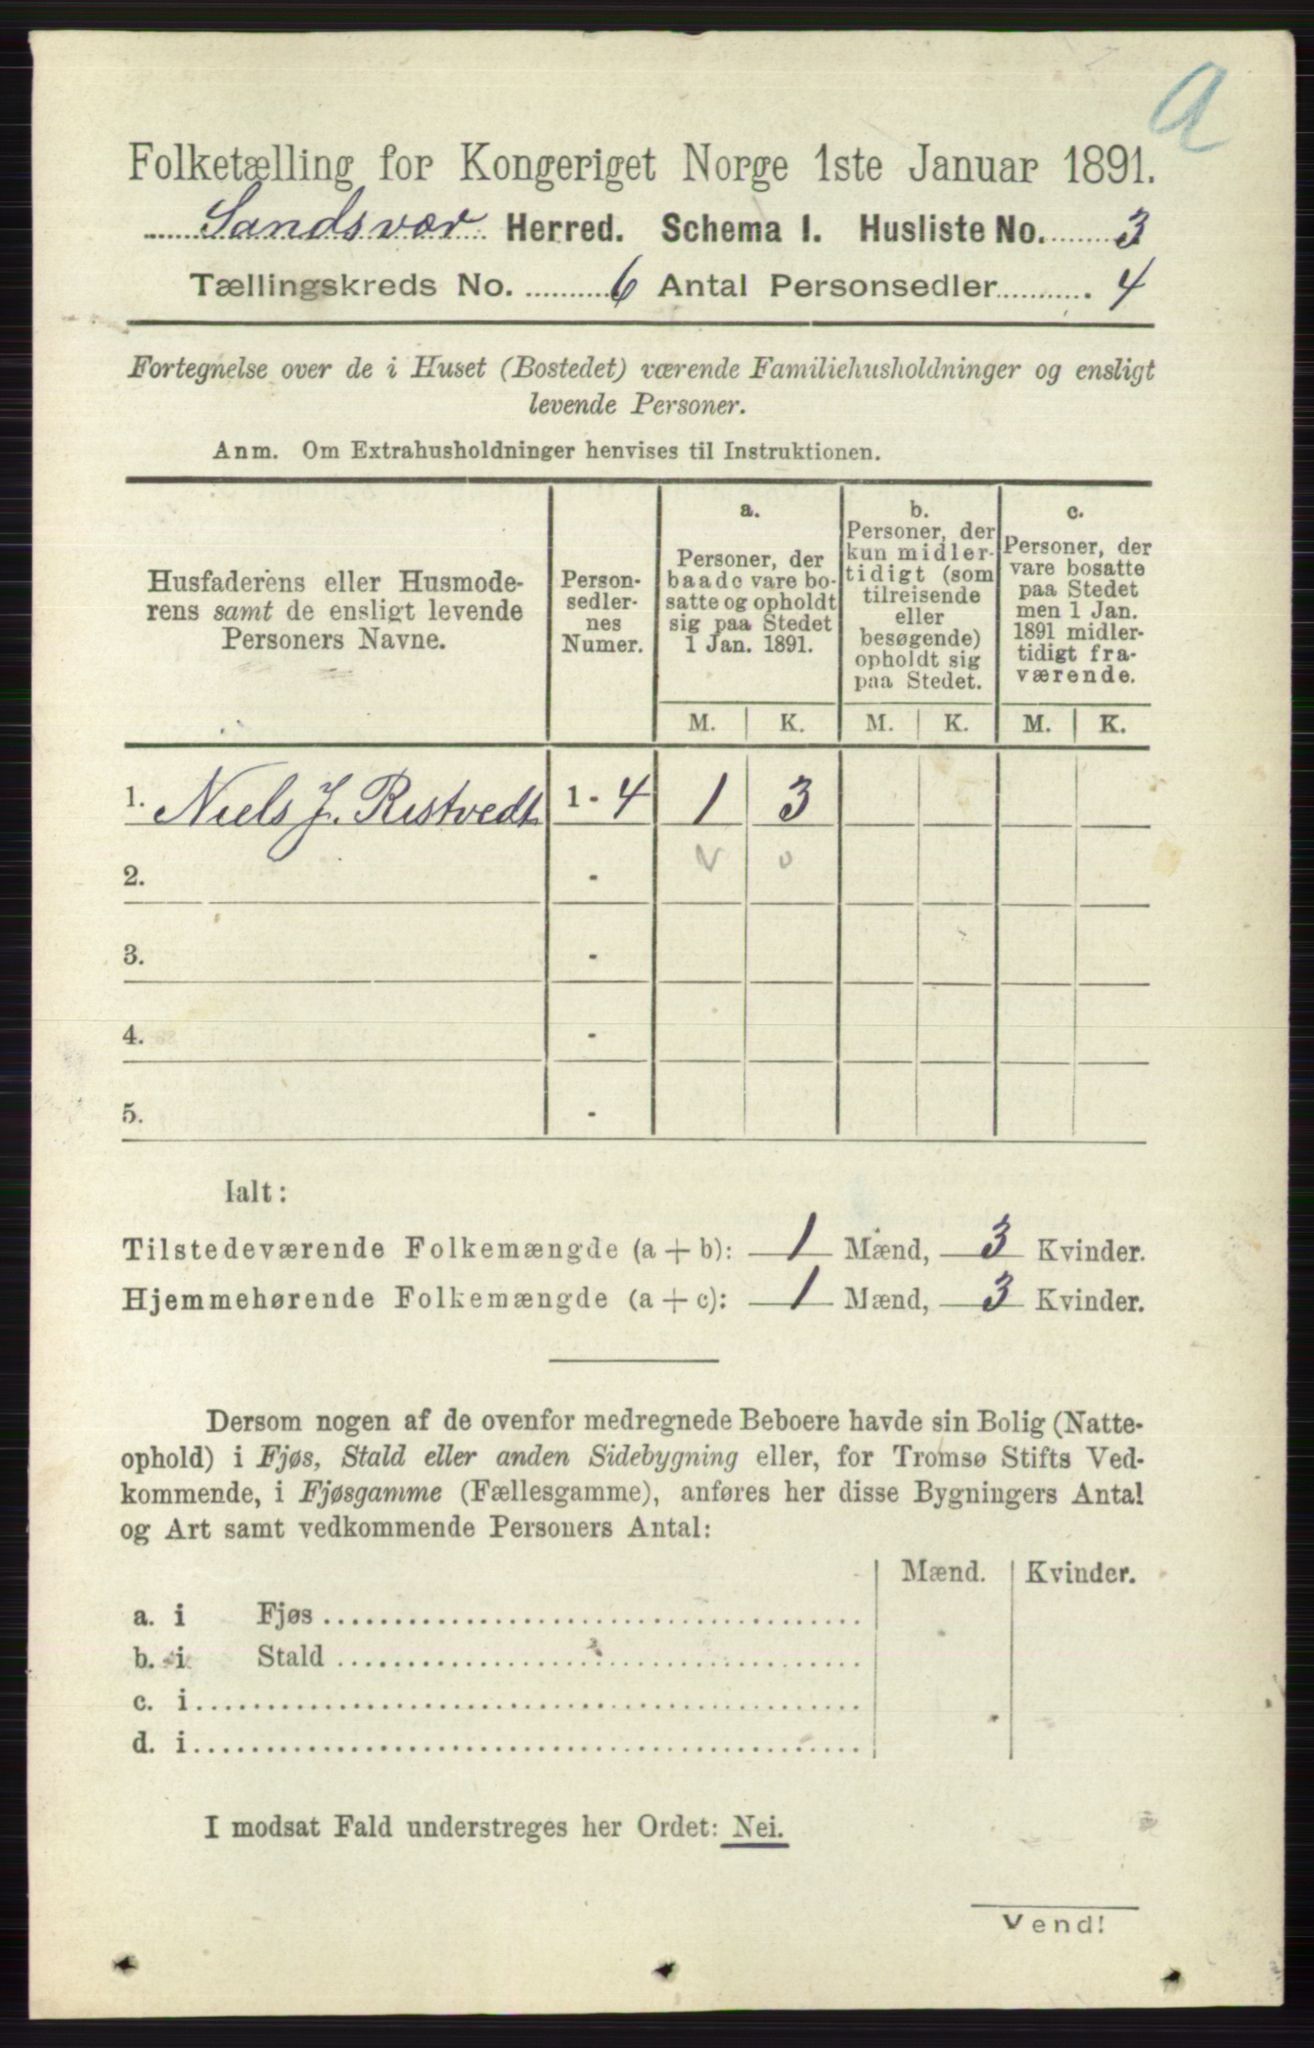 a
Folketælling for Kongeriget Norge 1ste Januar 1891.
Sandsvær Herred. Schema I. Husliste No. 3
Tællingskreds No. 6 Antal Personsedler 4
Fortegnelse over de i Huset (Bostedet) værende Familiehusholdninger og ensligt
levende Personer.
Anm. Om Extrahusholdninger henvises til Instruktionen.
Husfaderens eller Husmode-
rens samt de ensligt levende
Personers Navne.
Person-
sedler-
nes
Numer.
a.
Personer, der
baade vare bo-
satte og opholdt
sig paa Stedet
1 Jan. 1891.
b.
Personer, der
kun midler-
tidigt (som
tilreisende
eller
besøgende)
opholdt sig
paa Stedet.
c.
Personer, der
vare bosatte
paa Stedet
men 1 Jan.
1891 midler-
tidigt fra-
værende.
M. K. M. K. M. K.
1. Niels J. Ristvedt 1 - 4 1 3
v 0
2. -
3. -
4. -
5. -
Ialt:
Tilstedeværende Folkemængde (a + b): 1 Mænd, 3 Kvinder.
Hjemmehørende Folkemængde (a + c): 1 Mænd, 3 Kvinder.
Dersom nogen af de ovenfor medregnede Beboere havde sin Bolig (Natte-
ophold) i Fjøs, Stald eller anden Sidebygning eller, for Tromsø Stifts Ved-
kommende, i Fjøsgamme (Fællesgamme), anføres her disse Bygningers Antal
og Art samt vedkommende Personers Antal:
Mænd. Kvinder.
a. i Fjøs
b. i Stald
c. i
d. i
I modsat Fald understreges her Ordet: Nei.
Vend!